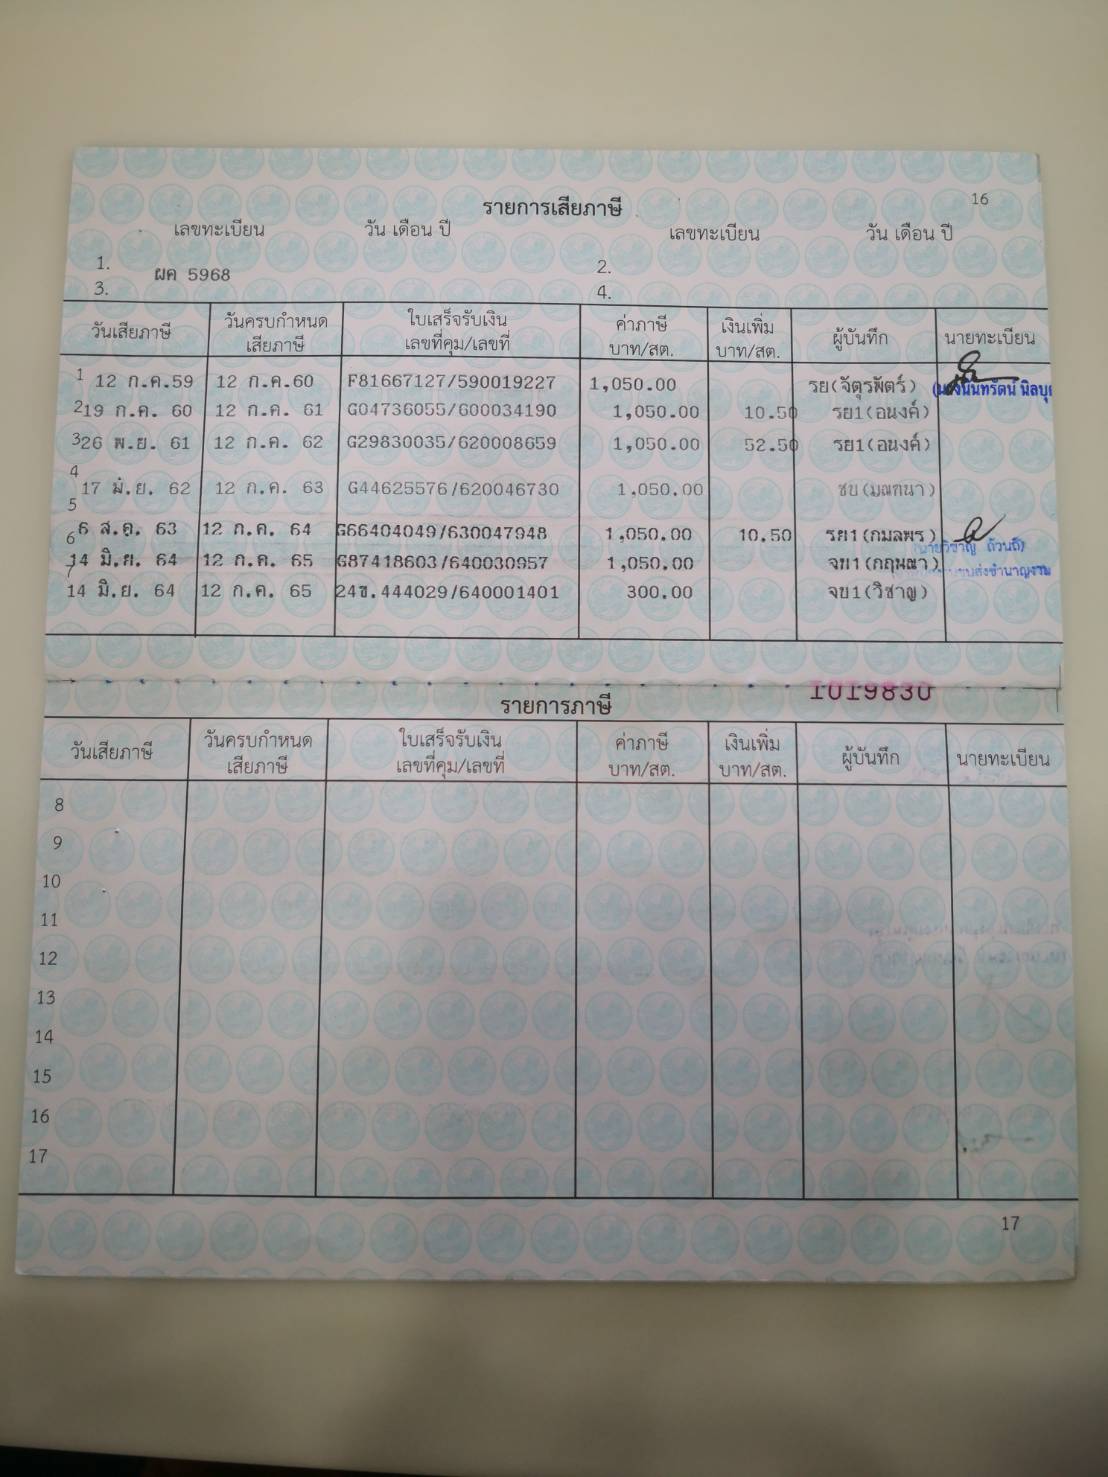 16
รายการเสียภาษี
เลขทะเบียน วัน เดือน ปี เลขทะเบียน วัน เดือน ปี
1. ผค 5968 2.
3. 4.
วันเสียภาษี วันครบกำหนดเสียภาษี ใบเสร็จรับเงิน เลขที่คุม/เลขที่ ค่าภาษี บาท/สต. เงินเพิ่ม บาท/สต. ผู้บันทึก นายทะเบียน
1 12 ก.ค.59 12 ก.ค.60 F81667127/590019227 1,050.00 รย(จัตุรพัตร์)
2 19 ก.ค. 60 12 ก.ค. 61 G04736055/600034190 1,050.00 10.50 รย1(อนงค์)
3 26 พ.ย. 61 12 ก.ค. 62 G29830035/620008659 1,050.00 52.50 รย1(อนงค์)
4 17 มิ.ย. 62 12 ก.ค. 63 G44625576/620046730 1,050.00 ชบ(มณฑนา)
5 6 ส.ค. 63 12 ก.ค. 64 G66404049/630047948 1,050.00 10.50 รย1(กมลพร)
6 14 มิ.ย. 64 12 ก.ค. 65 G87418603/640030957 1,050.00 จบ1(กฤษณา)
7 14 มิ.ย. 64 12 ก.ค. 65 24ข.444029/640001401 300.00 จบ1(วิชาญ)
1019830
รายการภาษี
วันเสียภาษี วันครบกำหนดเสียภาษี ใบเสร็จรับเงิน เลขที่คุม/เลขที่ ค่าภาษี บาท/สต. เงินเพิ่ม บาท/สต. ผู้บันทึก นายทะเบียน
8
9
10
11
12
13
14
15
16
17
17